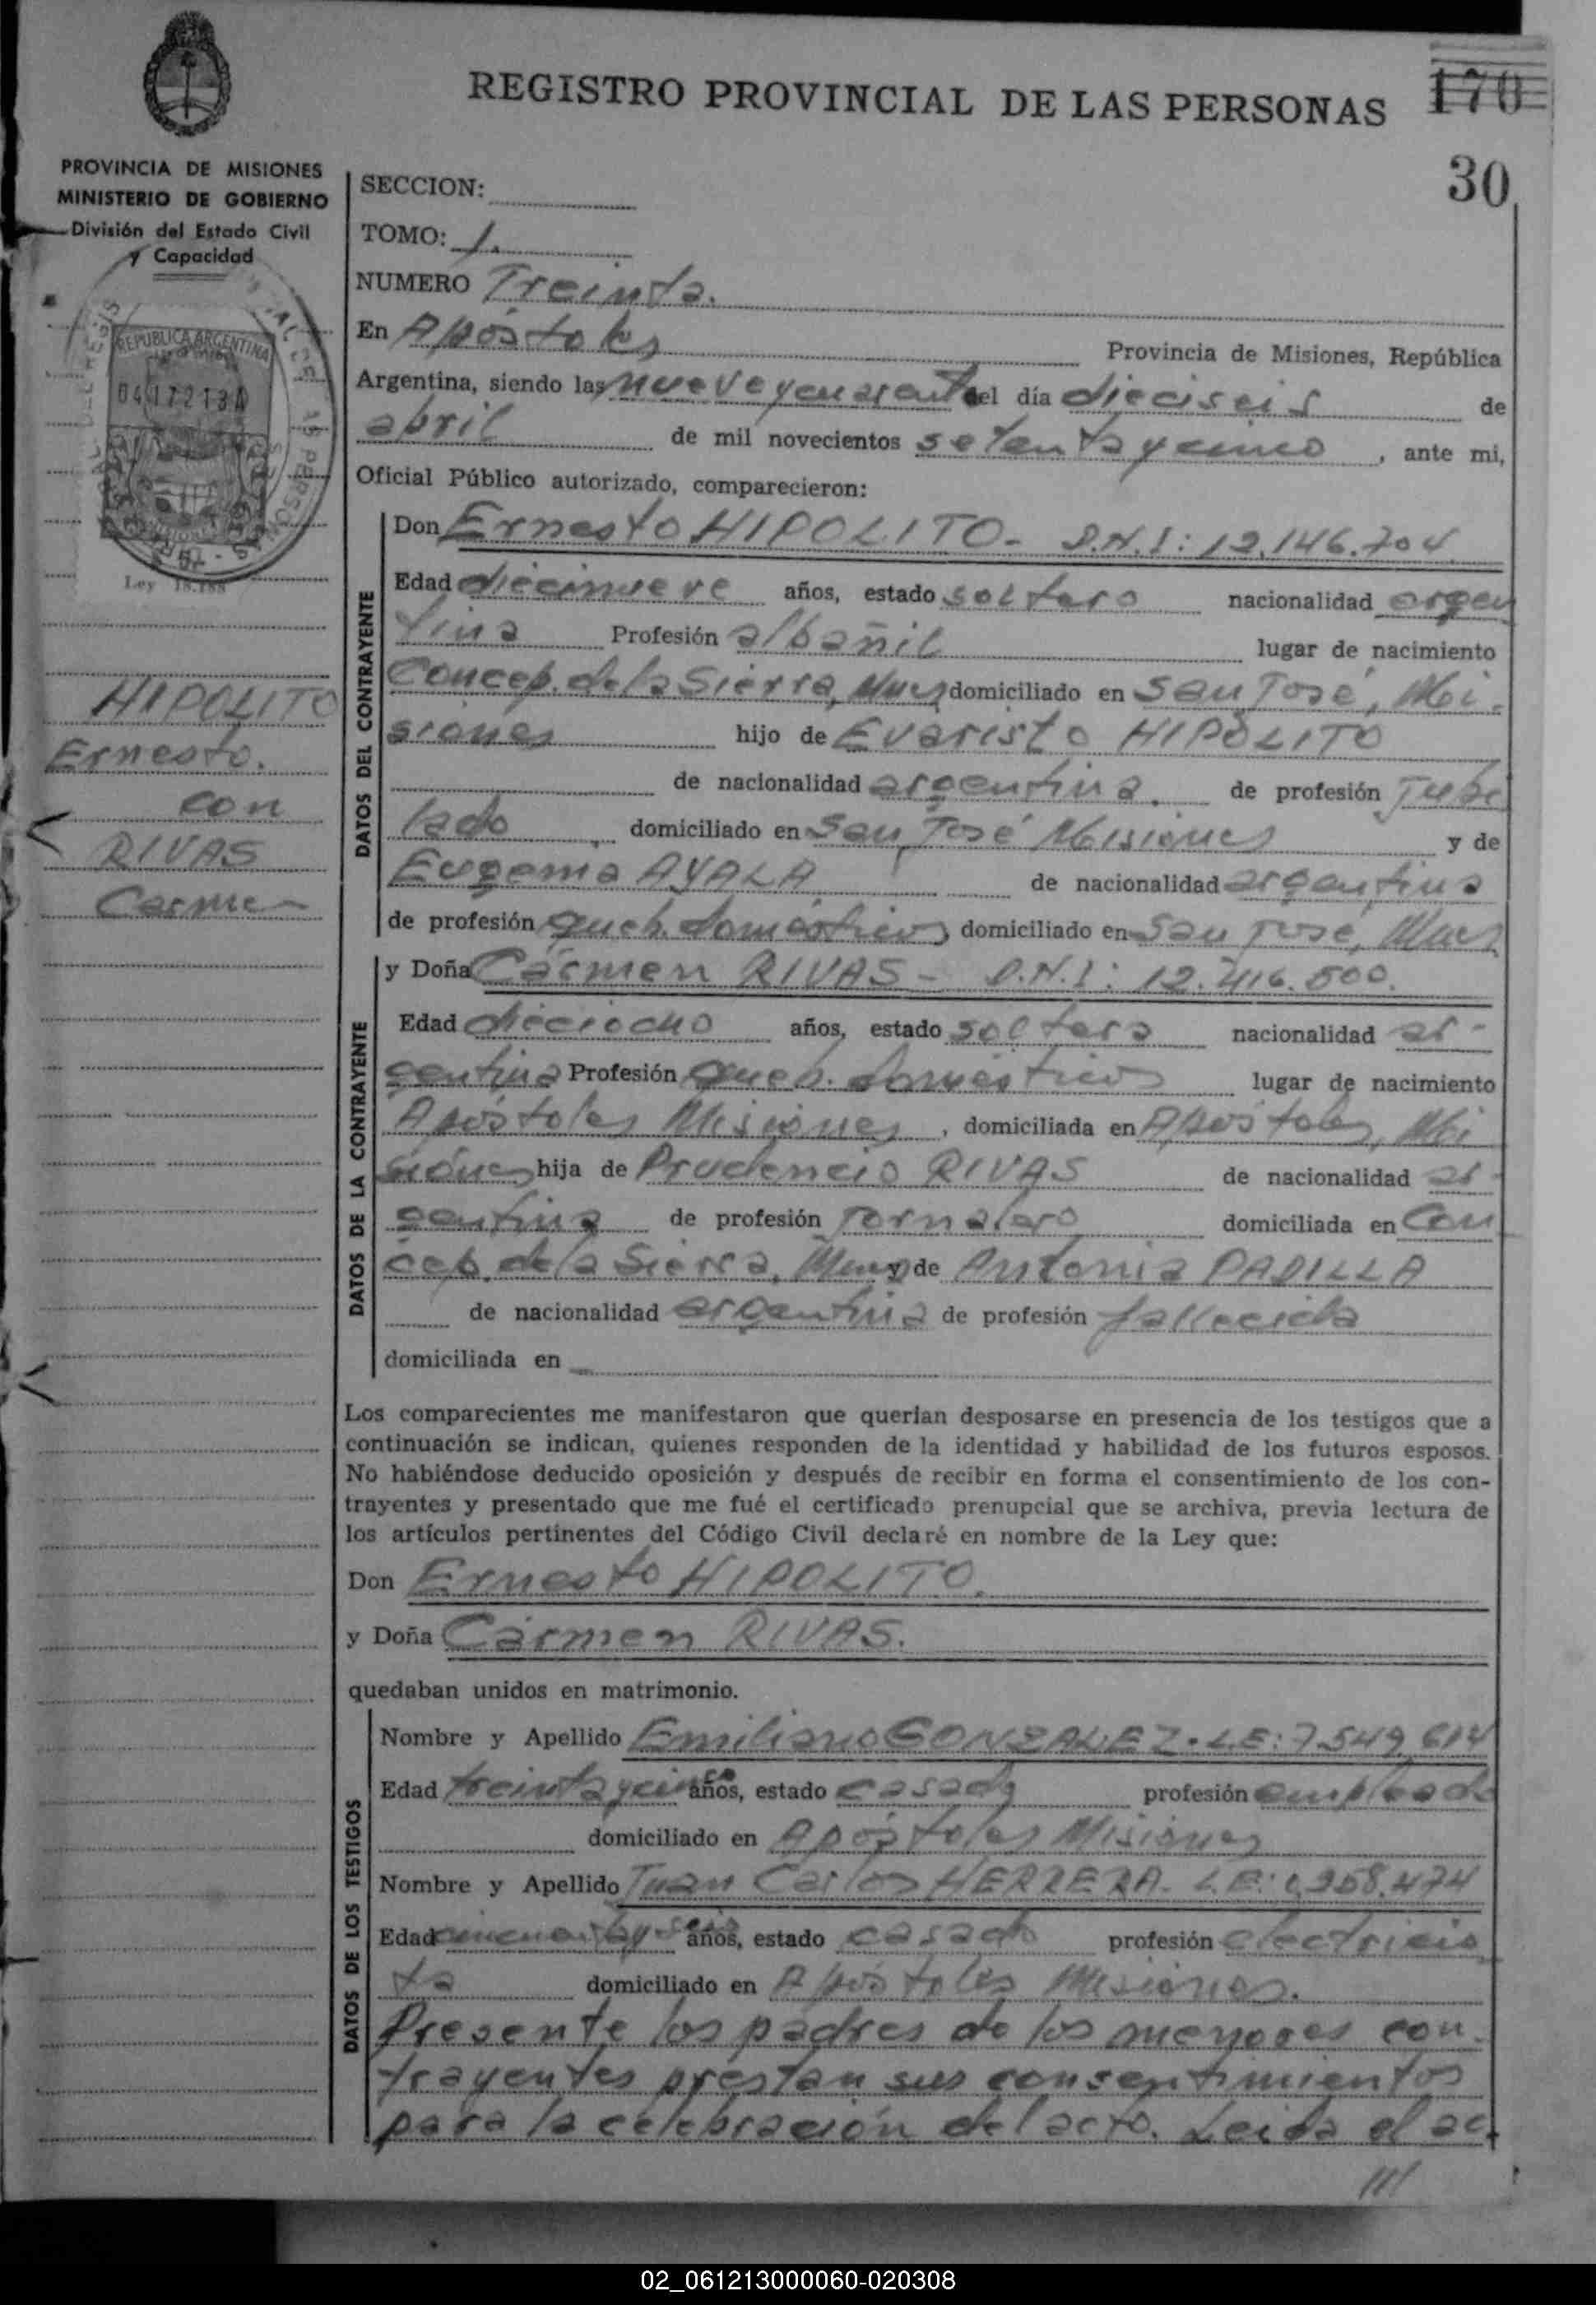 REGISTRO PROVINCIAL DE LAS PERSONAS
170
30
PROVINCIA DE MISIONES
MINISTERIO DE GOBIERNO
División del Estado Civil
y Capacidad
REPUBLICA ARGENTINA
Ley 18.188
HIPOLITO
Ernesto.
con
RIVAS
Carmen
SECCION:
TOMO: 1.
NUMERO Treinta.
En Apóstoles Provincia de Misiones, República
Argentina, siendo las nueve y cuarenta del día dieciseis de
abril de mil novecientos setenta y cinco, ante mi,
Oficial Público autorizado, comparecieron:
DATOS DEL CONTRAYENTE
Don Ernesto HIPOLITO- D.N.I: 12.146.704
Edad diecinueve años, estado soltero nacionalidad argen
tina Profesión albañil lugar de nacimiento
Concep. de la Sierra, Mnes domiciliado en San José, Mi-
siones hijo de Evaristo HIPOLITO
de nacionalidad argentina. de profesión Jubi
lado domiciliado en San José Misiones y de
Eugenia AYALA de nacionalidad argentina
de profesión queh. domésticos domiciliado en San José, Mnes
DATOS DE LA CONTRAYENTE
y Doña Cármen RIVAS- D.N.I: 12.416.500.
Edad dieciocho años, estado soltera nacionalidad ar-
gentina Profesión queh. domésticos lugar de nacimiento
Apóstoles Misiones, domiciliada en Apóstoles, Mi
siones hija de Prudencio RIVAS de nacionalidad ar-
gentina de profesión Jornalero domiciliada en Con
cep. de la Sierra, Mnes y de Antonia PADILLA
de nacionalidad argentina de profesión fallecida
domiciliada en
Los comparecientes me manifestaron que querían desposarse en presencia de los testigos que a
continuación se indican, quienes responden de la identidad y habilidad de los futuros esposos.
No habiéndose deducido oposición y después de recibir en forma el consentimiento de los con-
trayentes y presentado que me fué el certificado prenupcial que se archiva, previa lectura de
los artículos pertinentes del Código Civil declaré en nombre de la Ley que:
Don Ernesto HIPOLITO.
y Doña Cármen RIVAS.
quedaban unidos en matrimonio.
DATOS DE LOS TESTIGOS
Nombre y Apellido Emiliano GONZALEZ. L.E: 7.549.614
Edad treinta y cinco años, estado casado profesión empleado
domiciliado en Apóstoles Misiones
Nombre y Apellido Juan Carlos HERRERA. L.E:
Edad cincuenta y seis años, estado casado profesión electricis
ta domiciliado en Apóstoles Misiones.
Presente los padres de los menores con-
trayentes prestan sus consentimientos
para la celebración del acto. Leida el ac
///
02_061213000060-020308